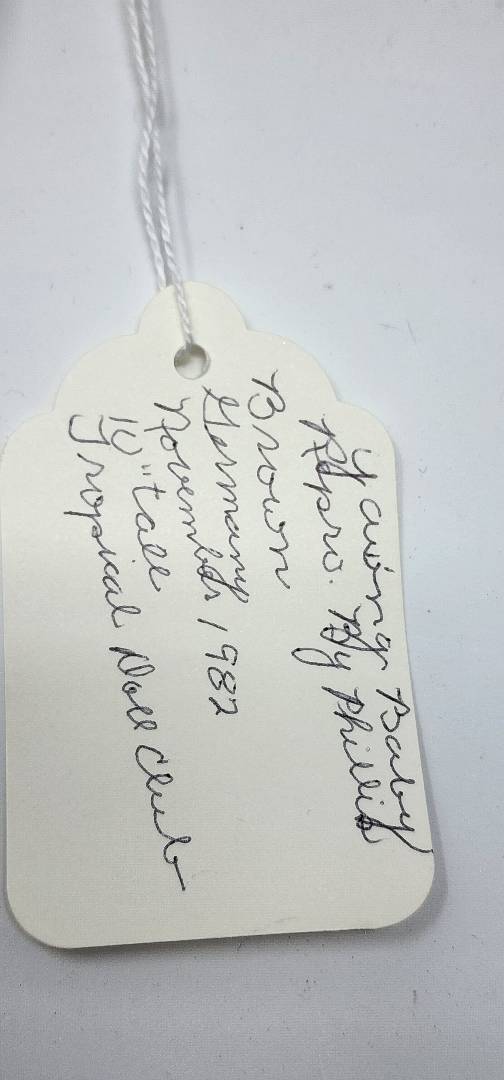 Yawing Baby
Repro. By Phillis
Brown
Germany
November 1982
10" tall
Tropical Doll Club